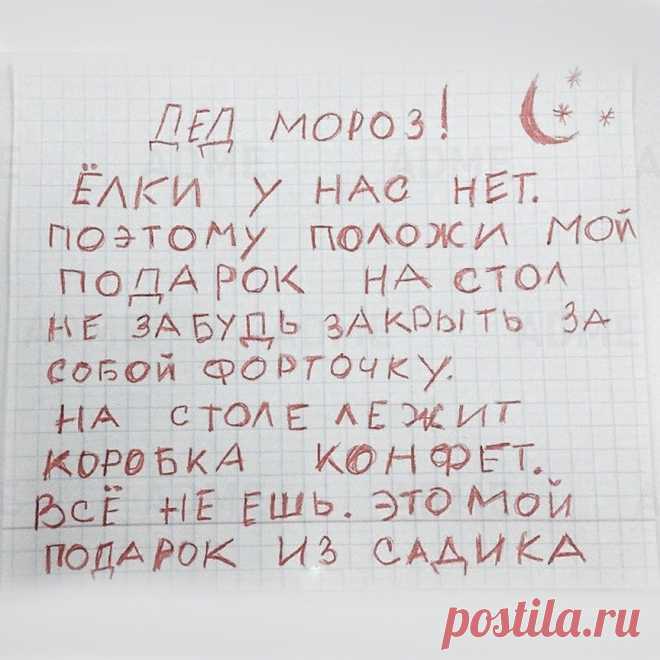 ДЕД МОРОЗ!
ЁЛКИ У НАС НЕТ.
ПОЭТОМУ ПОЛОЖИ МОЙ
ПОДАРОК НА СТОЛ
НЕ ЗАБУДЬ ЗАКРЫТЬ ЗА
СОБОЙ ФОРТОЧКУ.
НА СТОЛЕ ЛЕЖИТ
КОРОБКА КОНФЕТ.
ВСЁ НЕ ЕШЬ. ЭТО МОЙ
ПОДАРОК ИЗ САДИКА
postila.ru